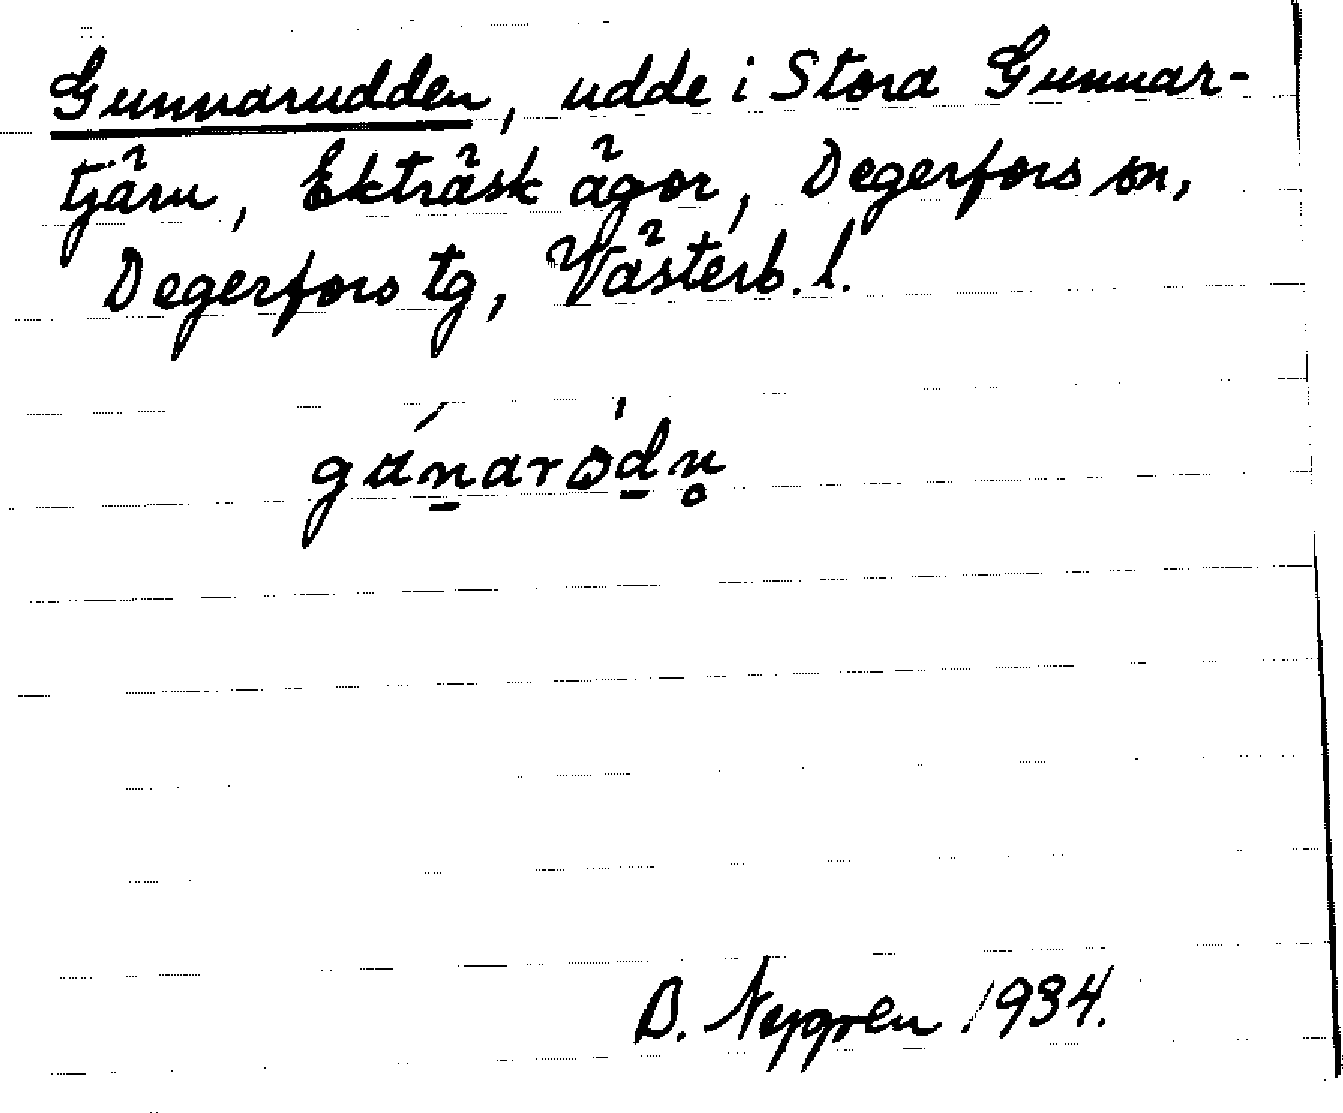 Gunnarudden, udde i Stora Gunnar-
tjärn, Ekträsk ägor, Degerfors sn,
Degerfors tg, Västerb. l.
D. Nygren 1934.